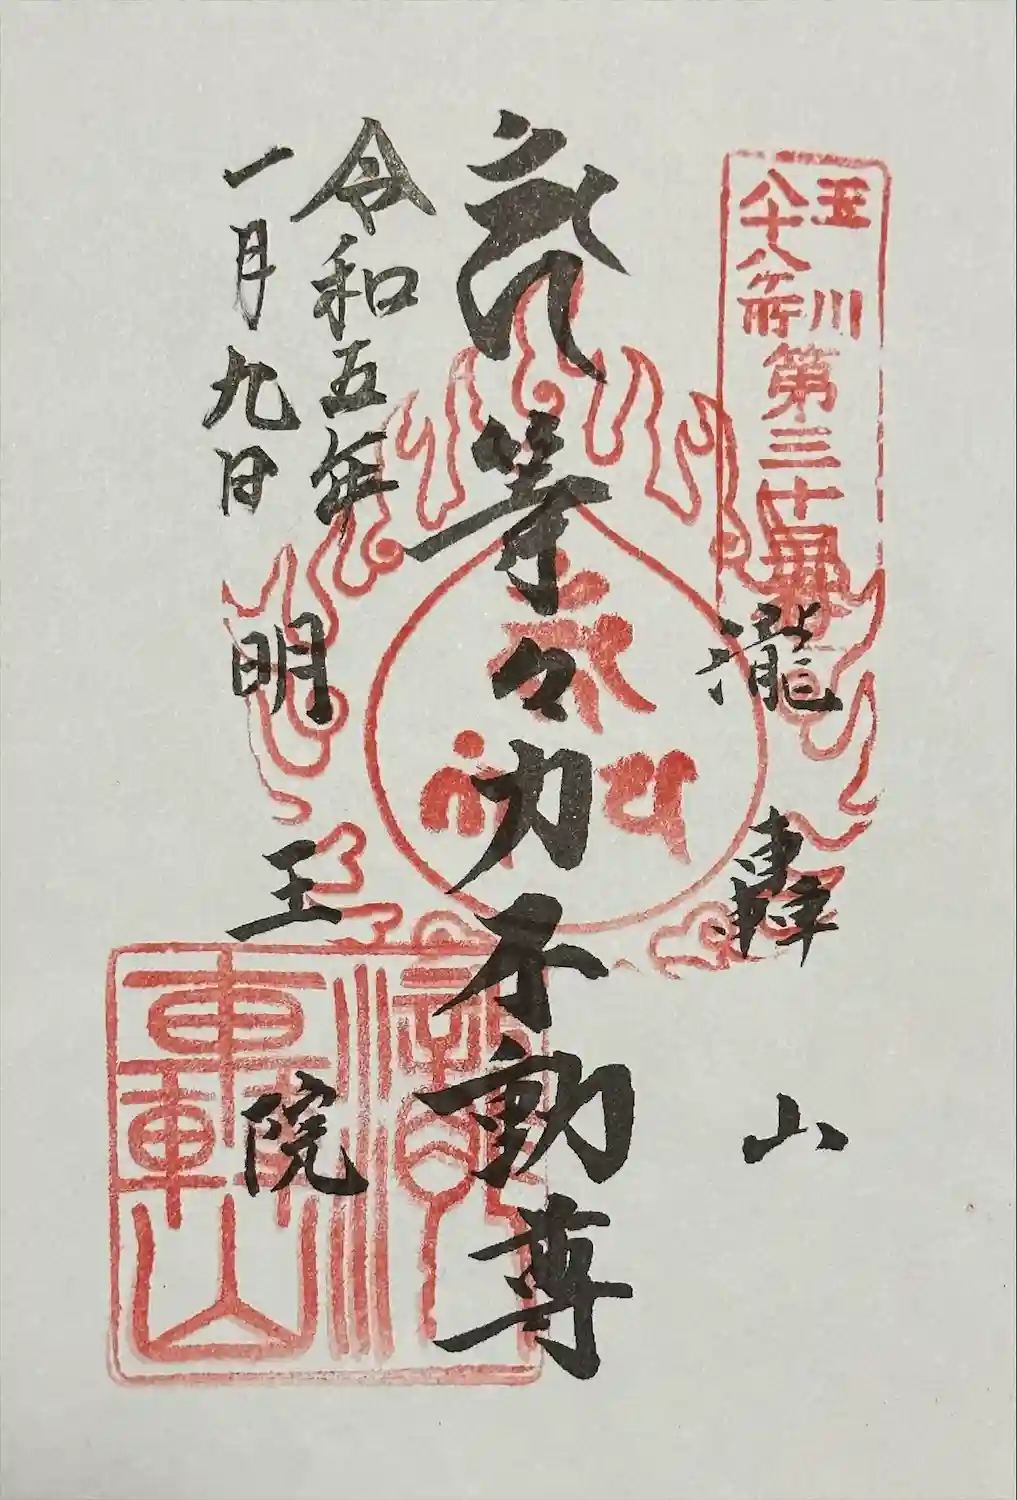 玉川
八十八ヶ所
第三十四番
瀧轟山
等々力不動尊
令和五年
一月九日
明王院
瀧
轟山